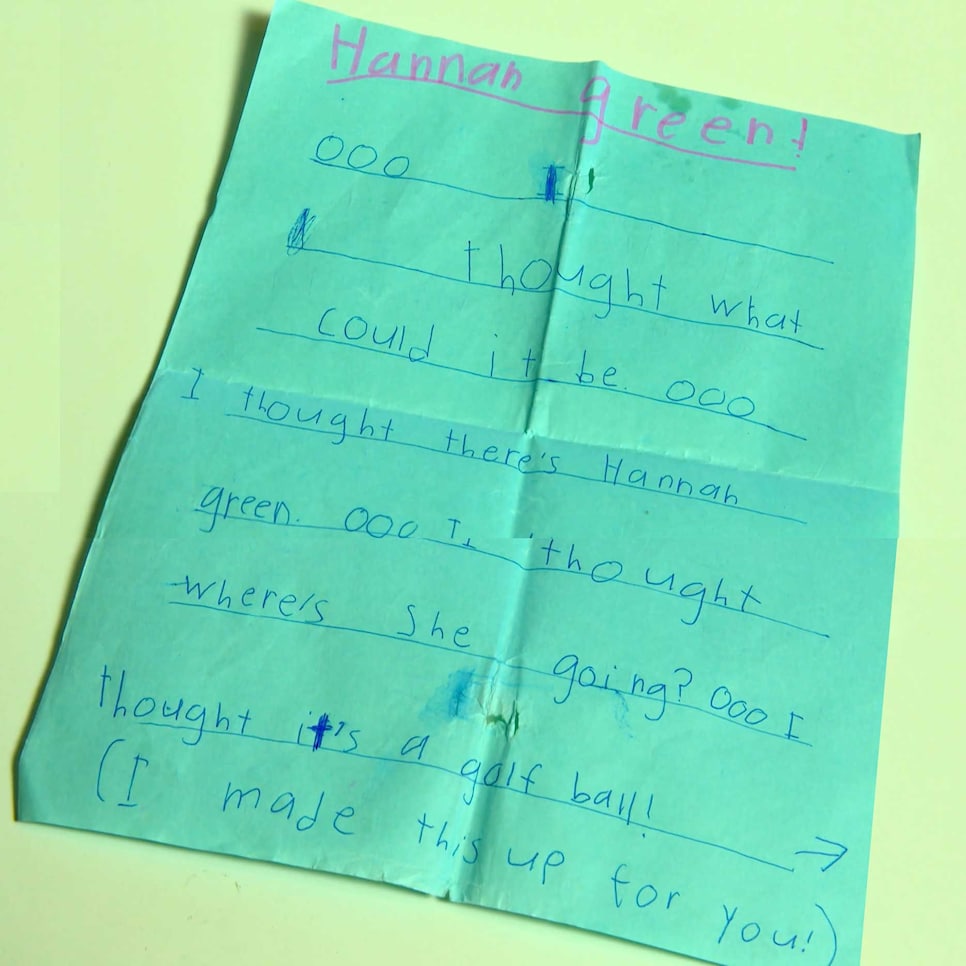 Hannah green!
ooo I
thought what
could it be. ooo
I thought there's Hannah
green. ooo I thought
where's she going? ooo I
thought it's a golf ball!
(I made this up for you!)
→